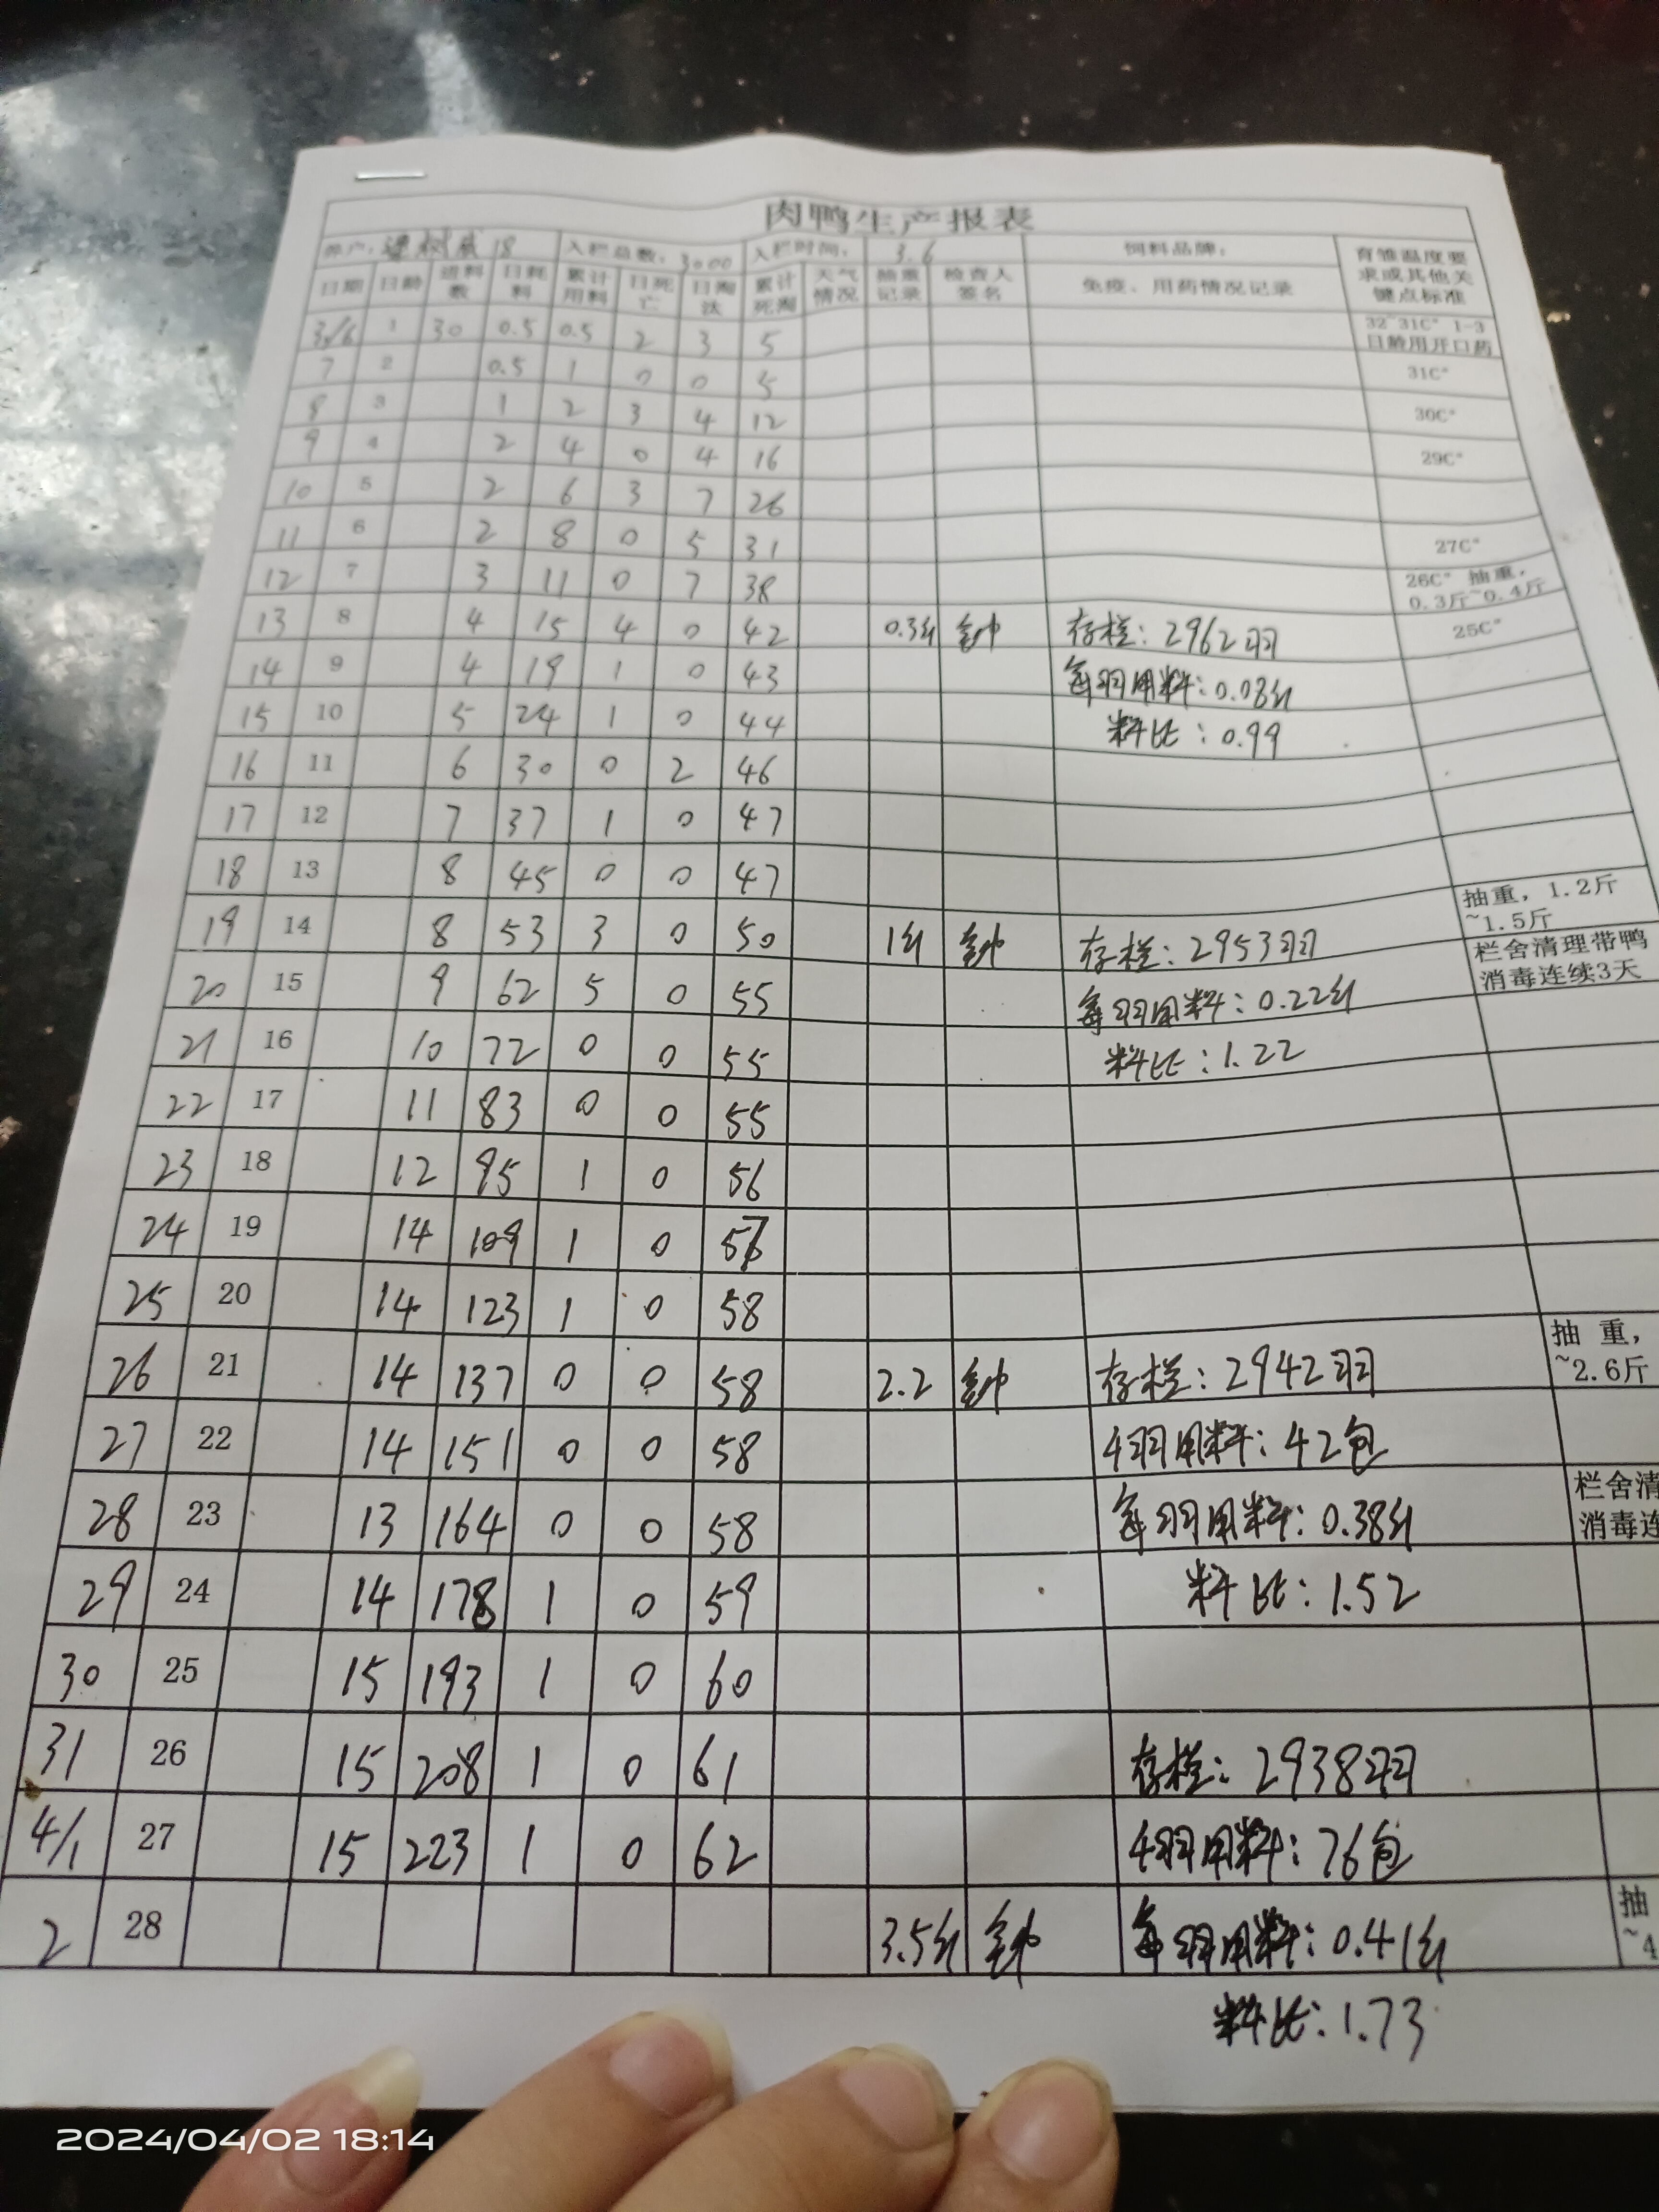 肉鸭生产报表
养户: 18 入栏总数: 3000 入栏时间: 3.6 饲料品牌: 育雏温度要求或其他关键点标准
日期 日龄 进料数 日耗料 累计用料 日死亡 日淘汰 累计死淘 天气情况 抽重记录 检查人签名 免疫、用药情况记录
3/6 1 30 0.5 0.5 2 3 5 32~31C° 1-3日龄用开口药
7 2 0.5 1 0 0 5 31C°
8 3 1 2 3 4 12 30C°
9 4 2 4 0 4 16 29C°
10 5 2 6 3 7 26
11 6 2 8 0 5 31 27C°
12 7 3 11 0 7 38 26C° 抽重, 0.3斤~0.4斤
13 8 4 15 4 0 42 0.3斤 存栏: 2962羽 25C°
14 9 4 19 1 0 43 每羽用料: 0.08斤
15 10 5 24 1 0 44 料比: 0.99
16 11 6 30 0 2 46
17 12 7 37 1 0 47
18 13 8 45 0 0 47
19 14 8 53 3 0 50 1斤 存栏: 2953羽 抽重, 1.2斤~1.5斤
20 15 9 62 5 0 55 每羽用料: 0.22斤 栏舍清理带鸭消毒连续3天
21 16 10 72 0 0 55 料比: 1.22
22 17 11 83 0 0 55
23 18 12 95 1 0 56
24 19 14 109 1 0 57
25 20 14 123 1 0 58
26 21 14 137 0 0 58 2.2 存栏: 2942羽 抽重, ~2.6斤
27 22 14 151 0 0 58 4羽用料: 42包
28 23 13 164 0 0 58 每羽用料: 0.38斤 栏舍清 消毒连
29 24 14 178 1 0 59 料比: 1.52
30 25 15 193 1 0 60
31 26 15 208 1 0 61 存栏: 2938羽
4/1 27 15 223 1 0 62 4羽用料: 76包
2 28 3.5斤 每羽用料: 0.41斤 抽 ~4
料比: 1.73
2024/04/02 18:14